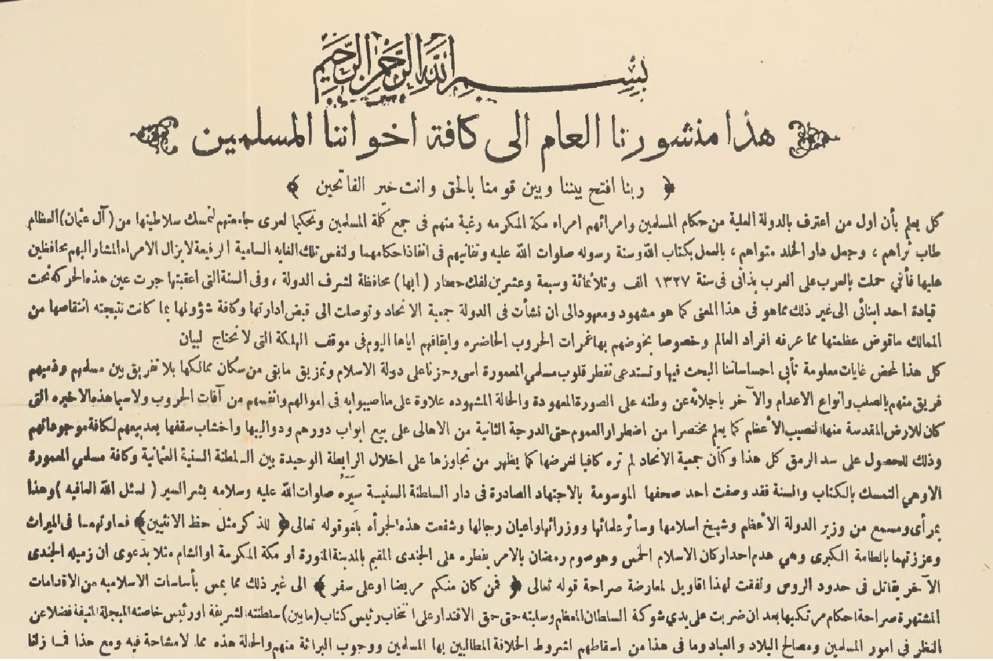 بسم الله الرحمن الرحيم
هذا منشورنا العام الى كافة اخواننا المسلمين
﴿ ربنا افتح بيننا وبين قومنا بالحق وانت خير الفاتحين ﴾
كل يعلم بأن اول من اعترف بالدولة العلية من حكام المسلمين وامرائهم امراء مكة المكرمه رغبة منهم فى جمع كلمة المسلمين وتحكيما لعرى جامعتهم لتمسك سلاطينها من (آل عثمان) العظام
طاب ثراهم ، وجعل دار الخلد مثواهم ، بالعمل بكتاب الله وسنة رسوله صلوات الله عليه وتفانيهم فى انفاذ احكامهما ولنفس تلك الغايه السامية الرفيعة لا يزال الامراء المشار اليهم محافظين
عليها فأننى حملت بالعرب على العرب بذاتى فى سنة ١٣٢٧ الف وثلاثمائة وسبعة وعشرين لفك حصار ( ابها ) محافظة لشرف الدولة ، وفى السنة التى اعقبتها جرت عين هذه الحركه تحت
قيادة احد ابنائى الى غير ذلك مما هو فى هذا المعنى كما هو مشهود ومعهود الى ان نشأت فى الدولة جمعية الاتحاد وتوصلت الى قبض ادارتها وكافة شؤونها بما كانت نتيجته انتقاصها من
الممالك ماقوض عظمتها مما عرفه افراد العالم وخصوصا بخوضهم بها غمرات الحروب الحاضره وايقافهم اياها اليوم فى موقف الهلكة التى لا تحتاج لبيان
كل هذا لمحض غايات معلومة تأبى احساساتنا البحث فيها وتستدعى تفطر قلوب مسلمي المعمورة اسى وحزنا على دولة الاسلام وتمزيق مابقى من سكان ممالكها بلا تفريق بين مسلمهم وذميهم
فريق منهم بالصلب وانواع الاعدام والآخر باجلائه عن وطنه على الصورة المعهودة والحالة المشهوده علاوة على ما اصيبوا به فى اموالهم وانفسهم من آفات الحروب ولا سيما هذه الاخيره التى
كان للارض المقدسة منها النصيب الأعظم كما يعلم مختصرا من اضطرار العموم حتى الدرجة الثانية من الاهالى على بيع ابواب دورهم ودواليبها واخشاب سقفها بعد بيعهم لكافة موجوداتهم
وذلك للحصول على سد الرمق كل هذا وكأن جمعية الاتحاد لم تره كافيا لغرضها كما يظهر من تجاوزها على اخلال الرابطة الوحيدة بين السلطنة السنية العثمانية وكافة مسلمي المعمورة
الا وهي التمسك بالكتاب والسنة فقد وصفت احد صحفها الموسومة بالاجتهاد الصادرة فى دار السلطنة السنيسة سيره صلوات الله عليه وسلامه بشر السير ( نسئل الله العافيه ) وهذا
بمرأى ومسمع من وزير الدولة الأعظم وشيخ اسلامها وسائر علمائها ووزرائها واعيان رجالها وشفعت هذه الجرأه بلغو قوله تعالى ﴿ للذكر مثل حظ الانثيين ﴾ فساوتهما فى الميراث
وعززتهما بالطامة الكبرى وهي هدم احد اركان الاسلام الخمس وهو صوم رمضان بالامر بفطره على الجندى المقيم بالمدينة المنورة او مكة المكرمة او الشام مثلا بدعوى ان زميله الجندى
الآخر يقاتل فى حدود الروس ولفقت لهذا اقاويل لمعارضة صراحة قوله تعالى ﴿ فمن كان منكم مريضا او على سفر ﴾ الى غير ذلك مما يمس بأساسات الاسلاميه من الاقدامات
المشتهرة صراحة احكام مرتكبها بعد ان ضربت على يدي شوكة السلطان المعظم وسلبته حتى حق الاقتدار على انتخاب رئيس كتاب (مابين) سلطنته الشريفة او رئيس خاصته المبجلة المنيفة فضلا عن
النظر فى امور المسلمين ومصالح البلاد والعباد وما فى هذا من اسقاطهم لشروط الخلافة المطالبين بها المسلمين ووجوب البرائة منهم والحالة هذه مما لا مشاحة فيه ومع هذا فما زلنا